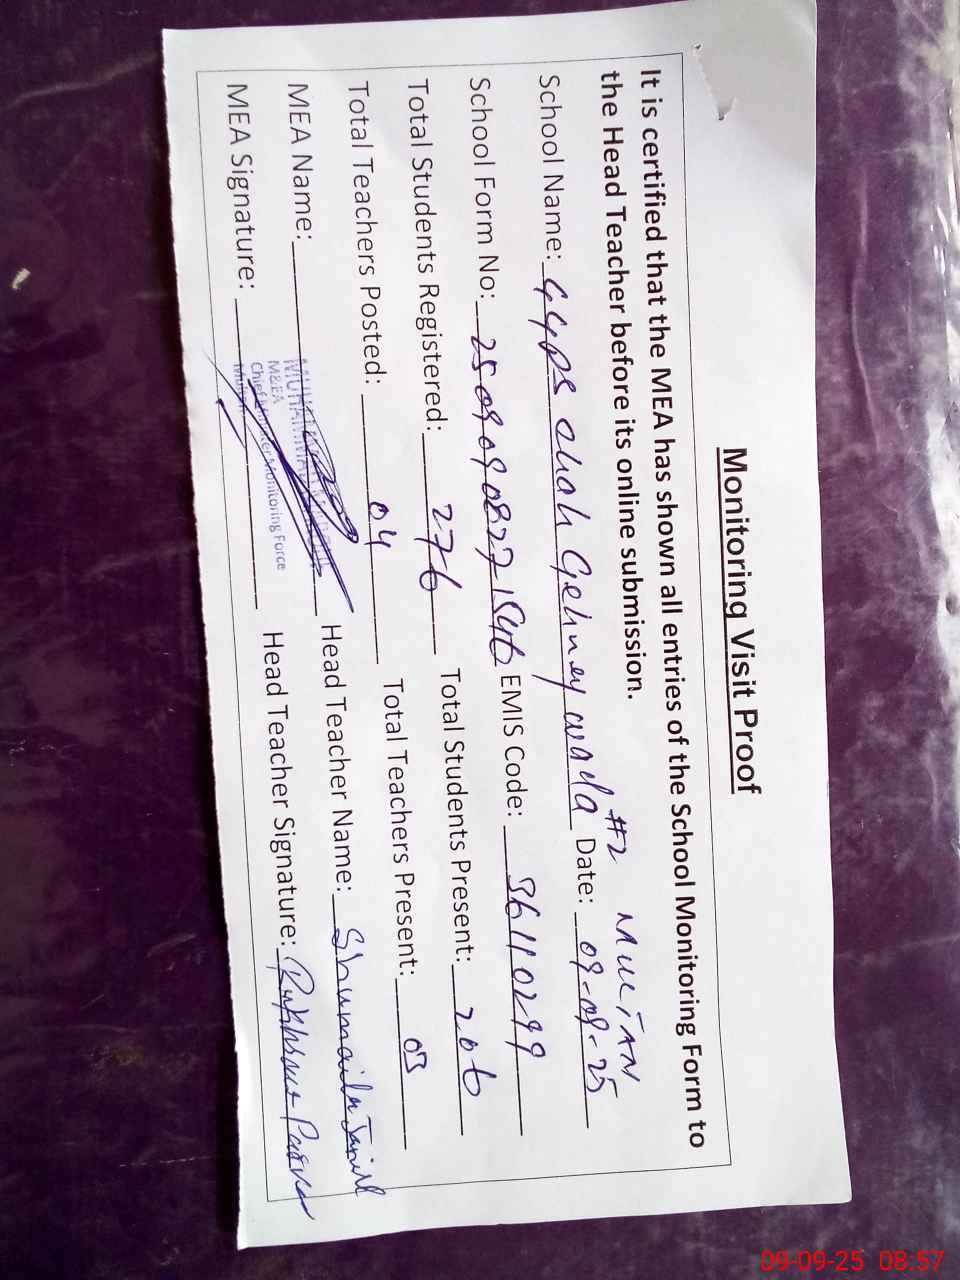 Monitoring Visit Proof
It is certified that the MEA has shown all entries of the School Monitoring Form to
the Head Teacher before its online submission.
#2 MULTAN
School Name: GGPS Shah Gehney wala Date: 09-09-25
School Form No: EMIS Code: 36110299
Total Students Registered: 276 Total Students Present: 206
Total Teachers Posted: 04 Total Teachers Present: 03
MEA Name: MUHAMMAD Head Teacher Name: Shumaila
M&EA
Chief Minister Monitoring Force
MEA Signature: Head Teacher Signature:
09-09-25 08:57